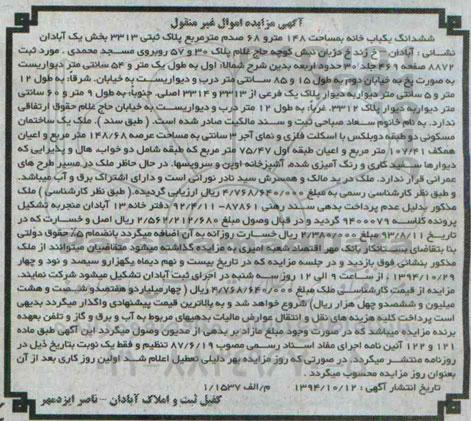 آگهی مزایده اموال غیر منقول
ششدانگ یکباب خانه بمساحت ۱۴۸ متر و ۶۸ صدم مترمربع پلاک ثبتی ۳۳۱۳ بخش یک آبادان
نشانی : آبادان - خ زند خ خزنان نبش کوچه حاج غلام پلاک ۳۰ و ۵۷ روبروی مسجد محمدی . مورد ثبت
۸۸۷۲ صفحه ۴۶۹ جلد ۳۰ حدود اربعه بدین شرح شمالاً: اول به طول یک متر و ۵۴ سانتی متر دیواریست
به صورت پخ به خیابان دوم به طول ۱۵ و ۸۵ سانتی متر درب و دیواریست به خیابان. شرقاً، به طول ۱۲
متر و ۵ سانتی متر دیوار به دیوار پلاک یک فرعی از ۳۳۱۳ و ۳۳۱۴ اصلی. جنوباً: به طول ۹ متر و ۶۰ سانتی
دیوار به دیوار پلاک ۳۳۱۲. غرباً: به طول ۱۲ متر درب و دیواریست به خیابان حاج غلام حقوق ارتفاقی
ندارد. به نام خانوم سعاد صباحی ثبت و سند مالکیت صادر شده است. ( طبق سند ). ملک یک ساختمان
مسکونی دو طبقه دوبلکس با اسکلت فلزی و نمای آجر ۳ سانتی به مساحت عرصه ۱۴۸/۶۸ متر مربع و اعیان
همکف ۱۰۷/۴۱ متر مربع و اعیان طبقه اول ۷۵/۴۷ متر مربع که طبقه شامل دو خواب، هال و پذیرایی که
دیوارها سفید کاری و رنگ آمیزی شده، آشپزخانه اوپن و سرویسها. در حال حاظر ملک در مسیر طرح های
عمرانی قرار ندارد. ملک در ید مالک و همسرش سید نادر نورانی است و دارای اشتراک برق و آب میباشد.
و طبق نظر کارشناسی رسمی به مبلغ ۴/۷۶۸/۶۴۰/۰۰۰ ریال ارزیابی گردیده.( طبق نظر کارشناسی ) ملک
مذکور بدلیل عدم پرداخت بدهی سند رهنی ۸۷۸۶۱- ۹۲/۴/۱۱ دفتر خانه ۱۳ آبادان منجر به تشکیل
پرونده کلاسه ۹۴۰۰۰۷۹ گردید و در قبال وصول مبلغ ۲/۵۶۲/۲۱۲/۶۸۰ ریال اصل و خسارت که در
تاریخ ۹۳/۸/۱۱ مبلغ ۲/۳۸۰/۰۰۰ ریال خسارت روزانه به آن اضافه میگردد بانضمام ۵٪ حقوق دولتی
بنا بتقاضای بستانکار بانک مهر اقتصاد شعبه امیری به مزایده گذاشته میشود متقاضیان میتوانند از ملک
مذکور بنشانی فوق بازدید و در جلسه مزایده که در تاریخ بیست و نهم دیماه یکهزارو سیصد و نود و چهار
۱۳۹۴/۱۰/۲۹ از ساعت ۹ الی ۱۲ روز سه شنبه در اجرای ثبت آبادان تشکیل میشود شرکت نمایند.
مزایده از قیمت کارشناسی ملک مبلغ ۴/۷۶۸/۶۴۰/۰۰۰ ریال ( چهار میلیارد و هفتصدو شصت و هشت
میلیون و ششصدو چهل هزار ریال) شروع خواهد شد و به بالاترین قیمت پیشنهادی واگذار میگردد بدیهی
است پرداخت کلیه هزینه های نقل و انتقال عوارض مالیات بدهیهای مربوط به آب و برق و گاز و تلفن بعهده
برنده مزایده میباشد که در صورت وجود مبلغ مازاد بر بدهی از مدیون وصول میگردد این آگهی طبق ماده
۱۲۱ و ۱۲۲ آئین نامه اجرای مفاد اسناد رسمی مصوب ۸۷/۶/۱۹ تنظیم و فقط یک نوبت بتاریخ ذیل در
روزنامه منتشر میگردد. در صورتی که روز مزایده بهر دلیلی تعطیل اعلام شد اولین روز کاری بعد از آن
بعنوان روز مزایده محسوب میگردد.
تاریخ انتشار آگهی : ۱۳۹۴/۱۰/۱۲ م/الف ۱/۱۵۳۷
کفیل ثبت و املاک آبادان - ناصر ایزدمهر